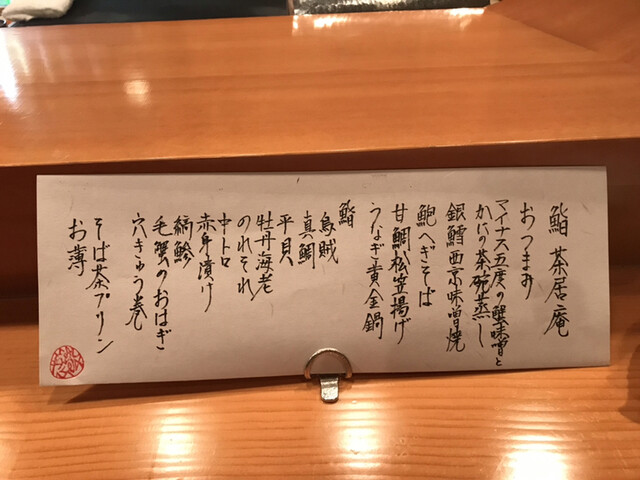 鮨 茶居庵
おつまみ
マイナス五度の蟹味噌と
かにの茶碗蒸し
銀鱈西京味噌焼
鮑へぎそば
甘鯛松笠揚げ
うなぎ黄金鍋
鮨
烏賊
真鯛
平貝
牡丹海老
のれそれ
中トロ
赤身漬け
縞鯵
毛蟹のおはぎ
穴きゅう巻
そば茶プリン
お薄